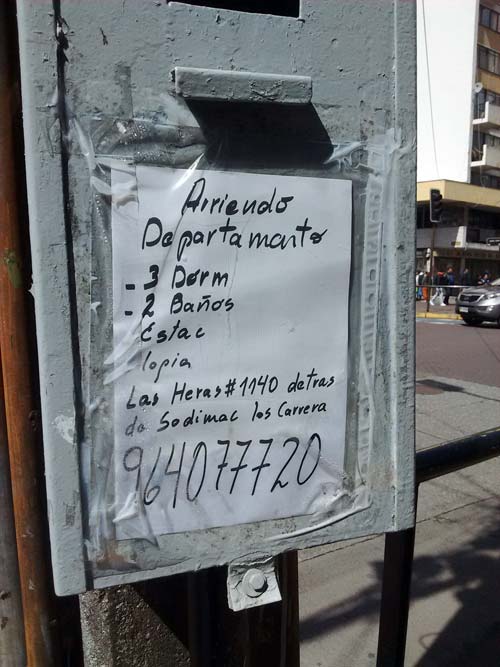 Arriendo
Departamento
- 3 Dorm
- 2 Baños
Estac
logia
Las Heras #1140 detras
de Sodimac los Carrera
964077720